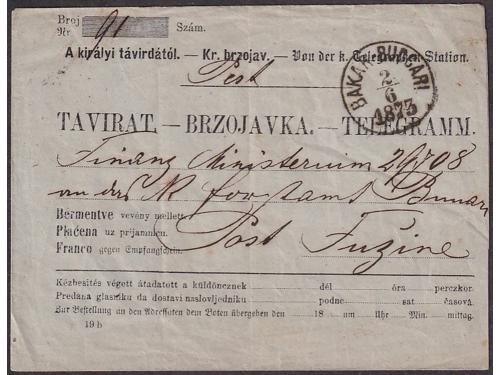 Broj
Nr. 91 Szám.
A királyi távirdától. — Kr. brzojav. — Von der k. Telegrafen-Station.
Pest
BAKAR BUCCARI
2/6
1873
TAVIRAT. — BRZOJAVKA. — TELEGRAMM.
Finanz Ministerium 29708
an das K Forstamt
Bérmentve vevény mellett.
Plaćena uz prijamnicu. Post Fuzine
Franco gegen Empfangschein.
Kézbesítés végett átadatott a küldöncznek dél óra perczkor.
Predana glasniku da dostavi naslovljedniku podne sat časova.
Zur Bestellung an den Adressaten dem Boten übergeben den 18 um Uhr Min. mittag.
19 b